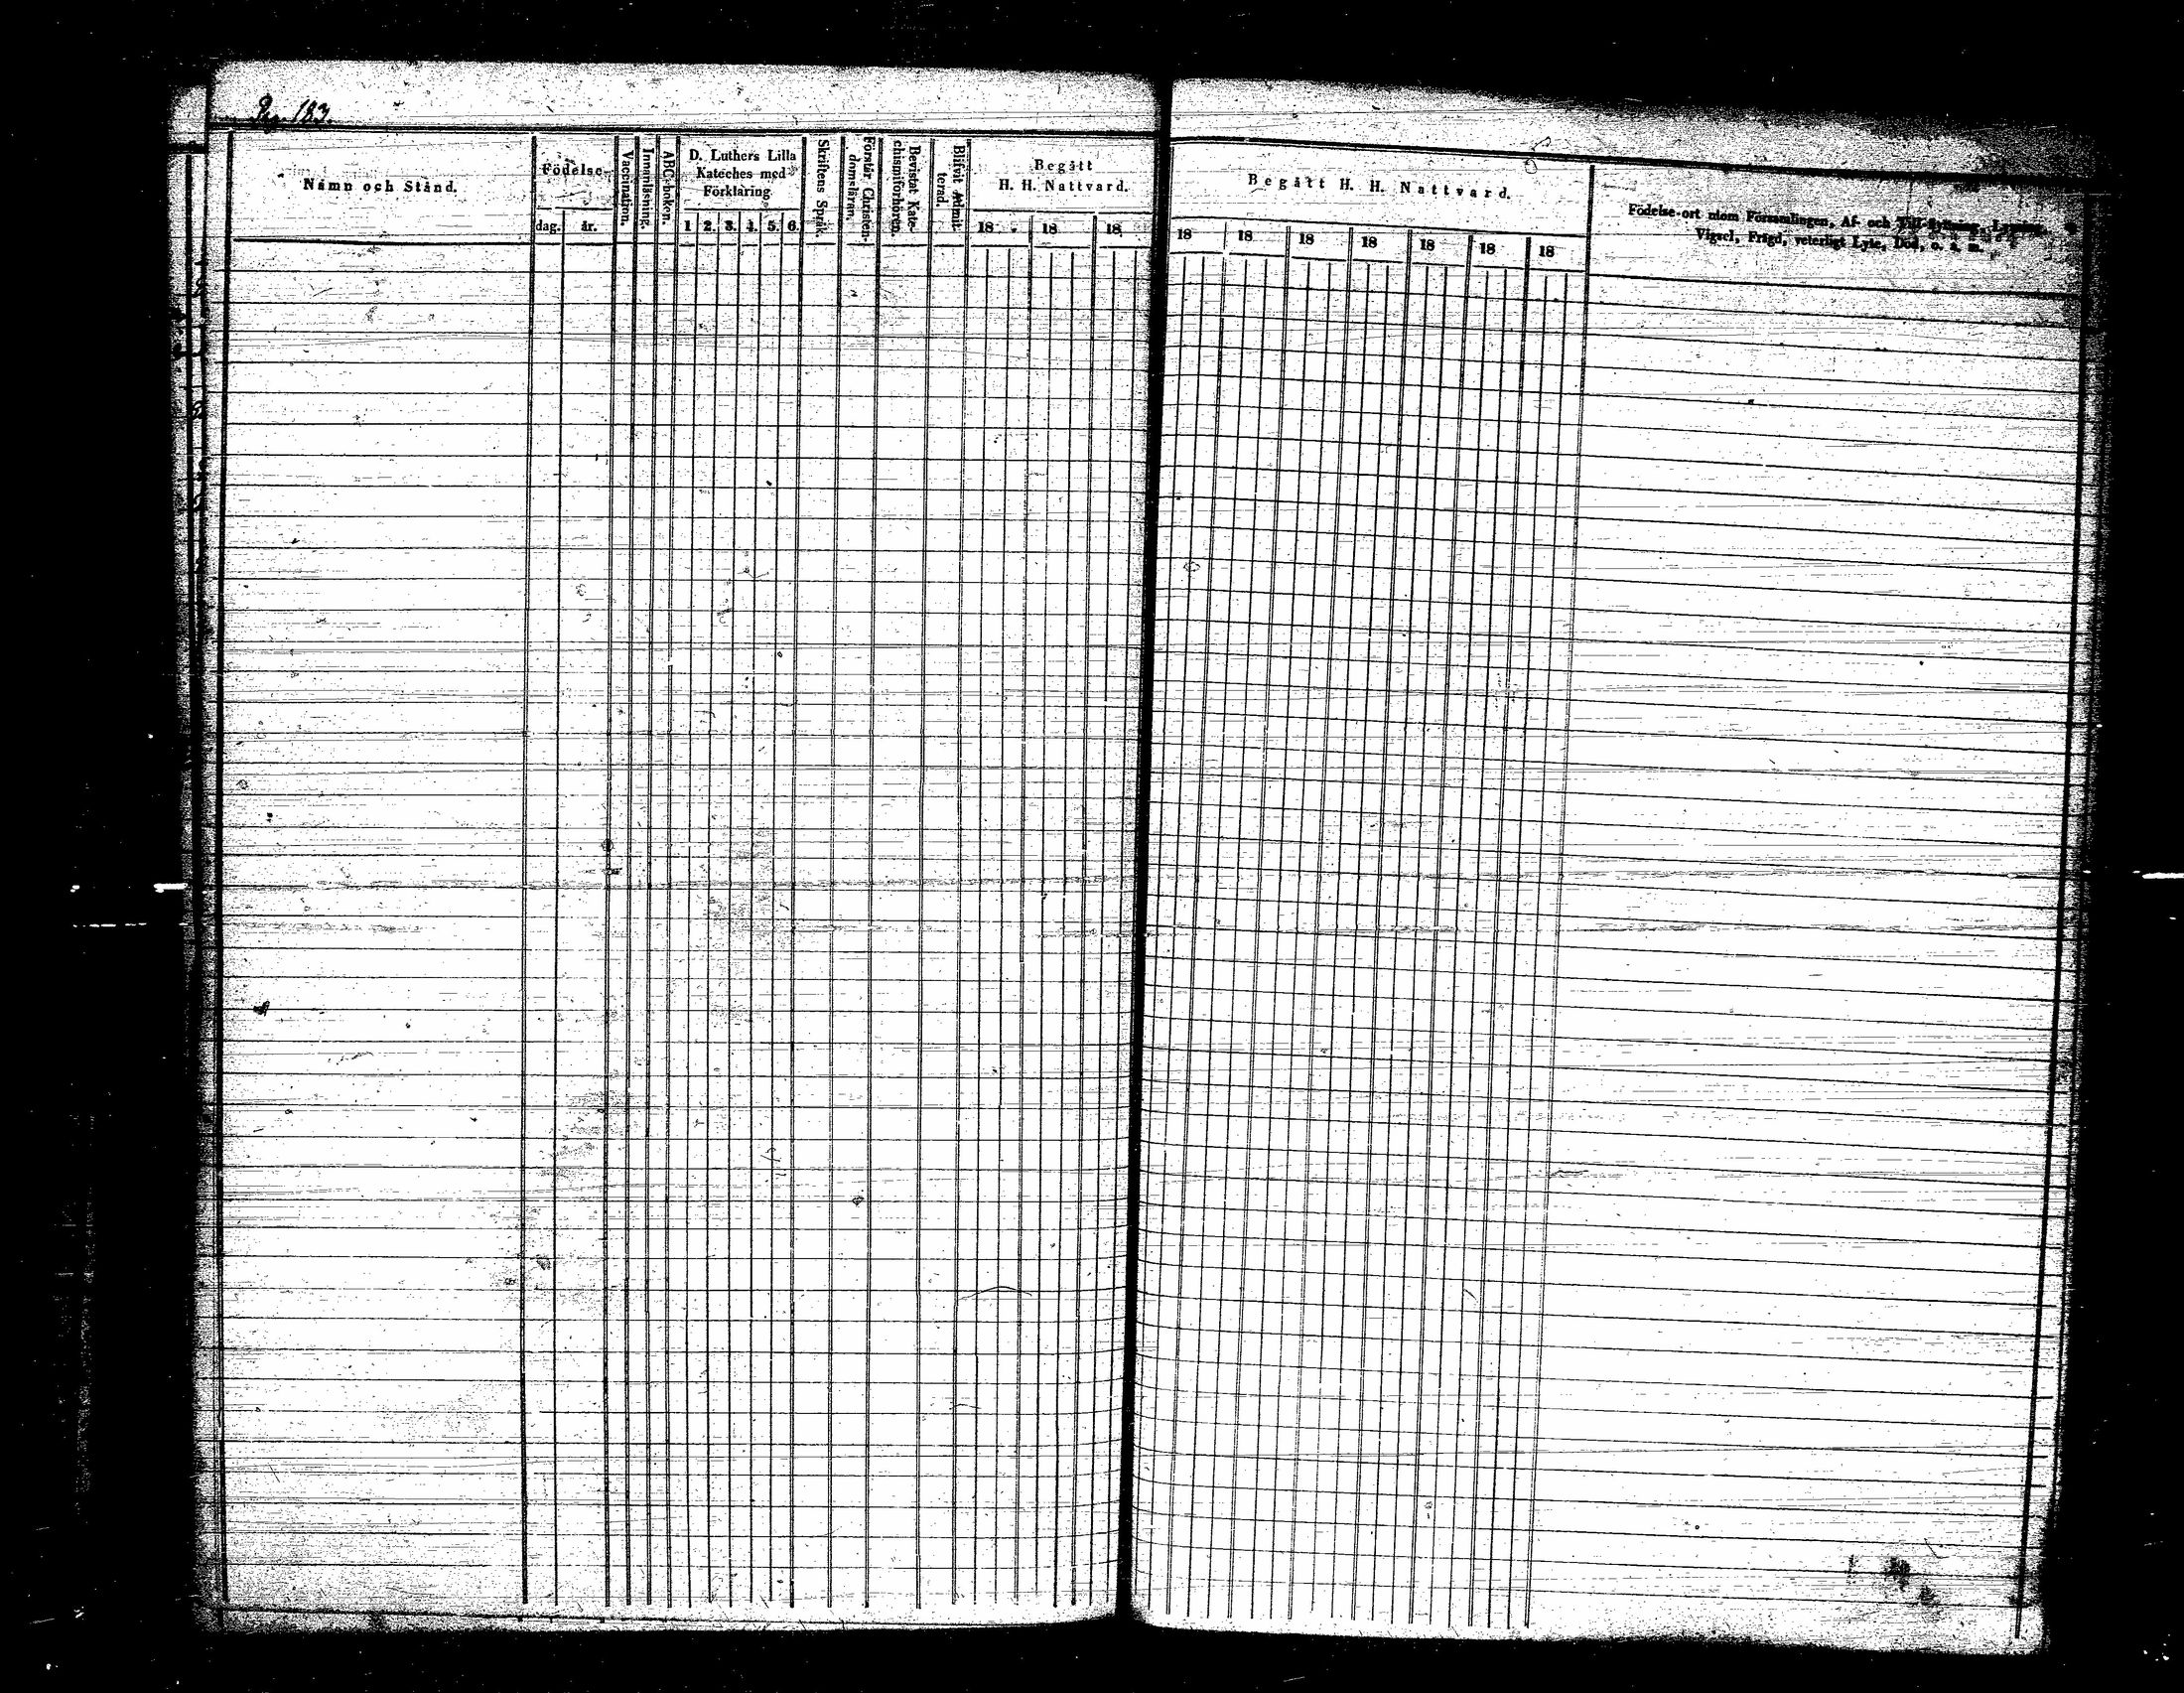 Pag. 183.
Namn och Stånd.
Födelse-
dag. år.
Vaccination.
Innanläsning.
ABC-boken.
D. Luthers Lilla
Kateches med
Förklaring.
1 2. 3. 4. 5. 6.
Skriftens Språk.
Förstår Christen-
domsläran.
Bevistat Kate-
chismiförhören.
Blifvit Admit-
terad.
Begått
H. H. Nattvard.
18 18 18
Begått H. H. Nattvard.
18 18 18 18 18 18 18
Födelse-ort utom Församlingen, Af- och Till-flyttning, Lysning,
Vigsel, Frägd, veterligt Lyte, Död, o. s. m.